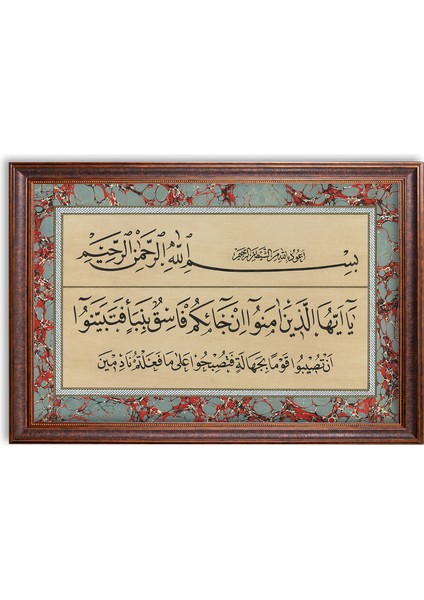 اعوذ بالله من الشيطان الرجيم
بِسْمِ اللّٰهِ الرَّحْمٰنِ الرَّحِيمِ
يَٓا اَيُّهَا الَّذِينَ اٰمَنُٓوا اِنْ جَٓاءَكُمْ فَاسِقٌ بِنَبَأٍ فَتَبَيَّنُٓوا
اَنْ تُصِيبُوا قَوْمًا بِجَهَالَةٍ فَتُصْبِحُوا عَلٰى مَا فَعَلْتُمْ نَادِمِينَ